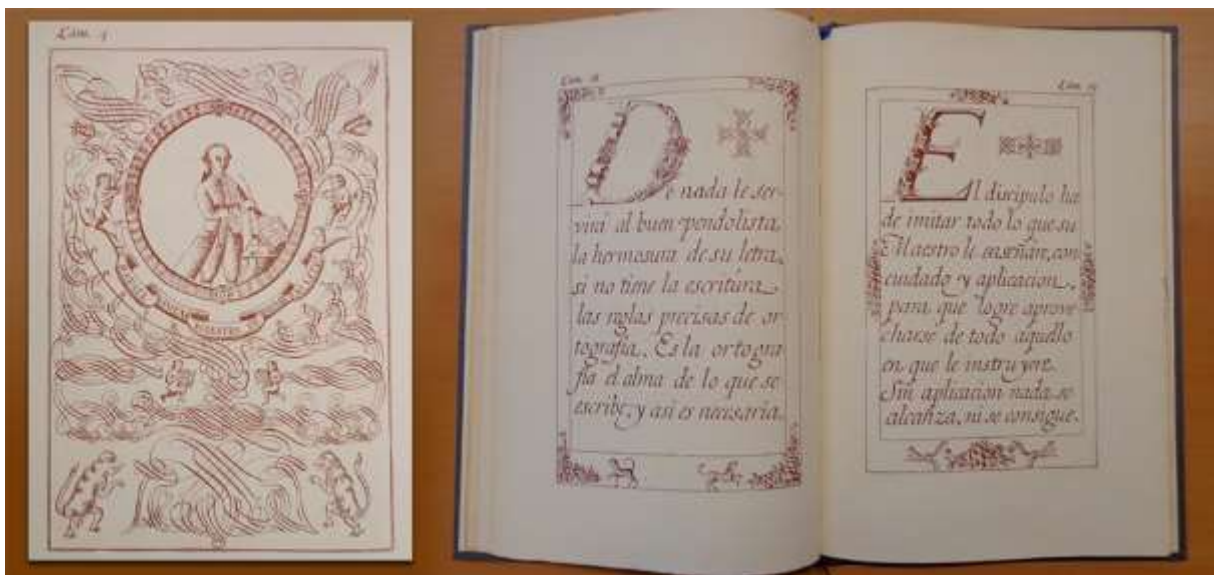 Lám. 4
MAESTRO
Lám. 18
De nada le ser-
virá al buen pendolista,
la hermosura de su letra,
si no tiene la escritura
las reglas precisas de or
tografía. Es la ortogra
fía el alma de lo que se
escribe, y así es necesaria.
Lám. 19
El discipulo ha
de imitar todo lo que su
Maestro le enseñare, con
cuidado y aplicacion,
para que logre aprove
charse de todo aquello
en que le instruyere.
Sin aplicacion nada se
alcanza, ni se consigue.